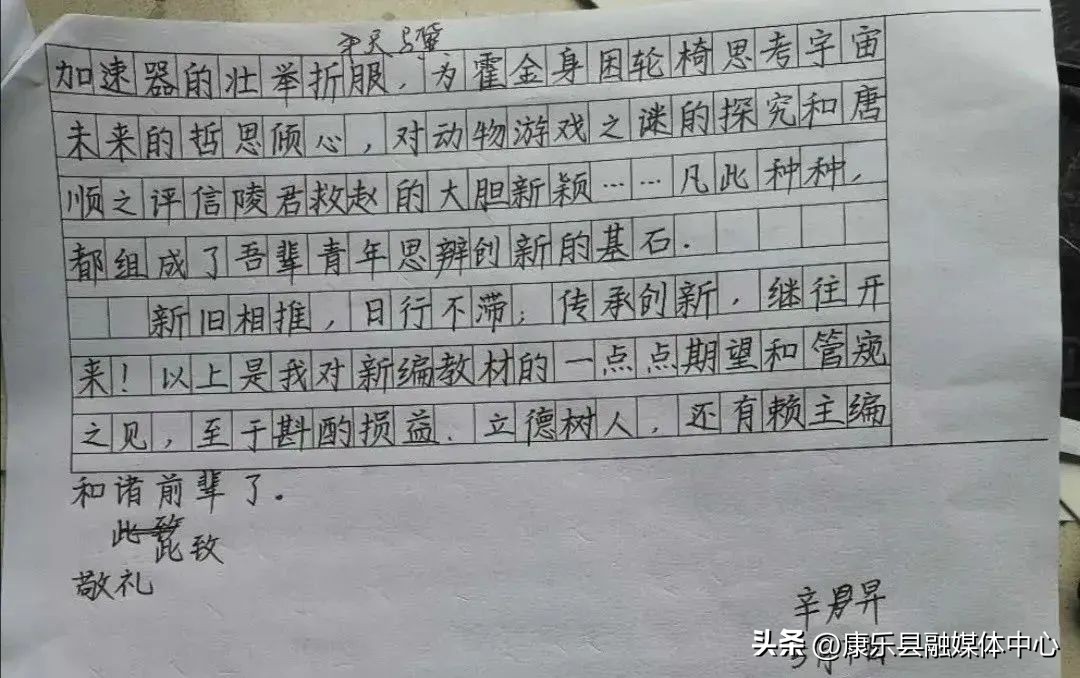 加速器的壮举折服，为霍金身困轮椅思考宇宙
未来的哲思倾心，对动物游戏之谜的探究和唐
顺之评信陵君救赵的大胆新颖……凡此种种，
都组成了吾辈青年思辨创新的基石．
新旧相推，日行不滞；传承创新，继往开
来！以上是我对新编教材的一点点期望和管窥
之见，至于斟酌损益．立德树人，还有赖主编
和诸前辈了．
此致
此致
敬礼
辛昇
头条 @康乐县融媒体中心